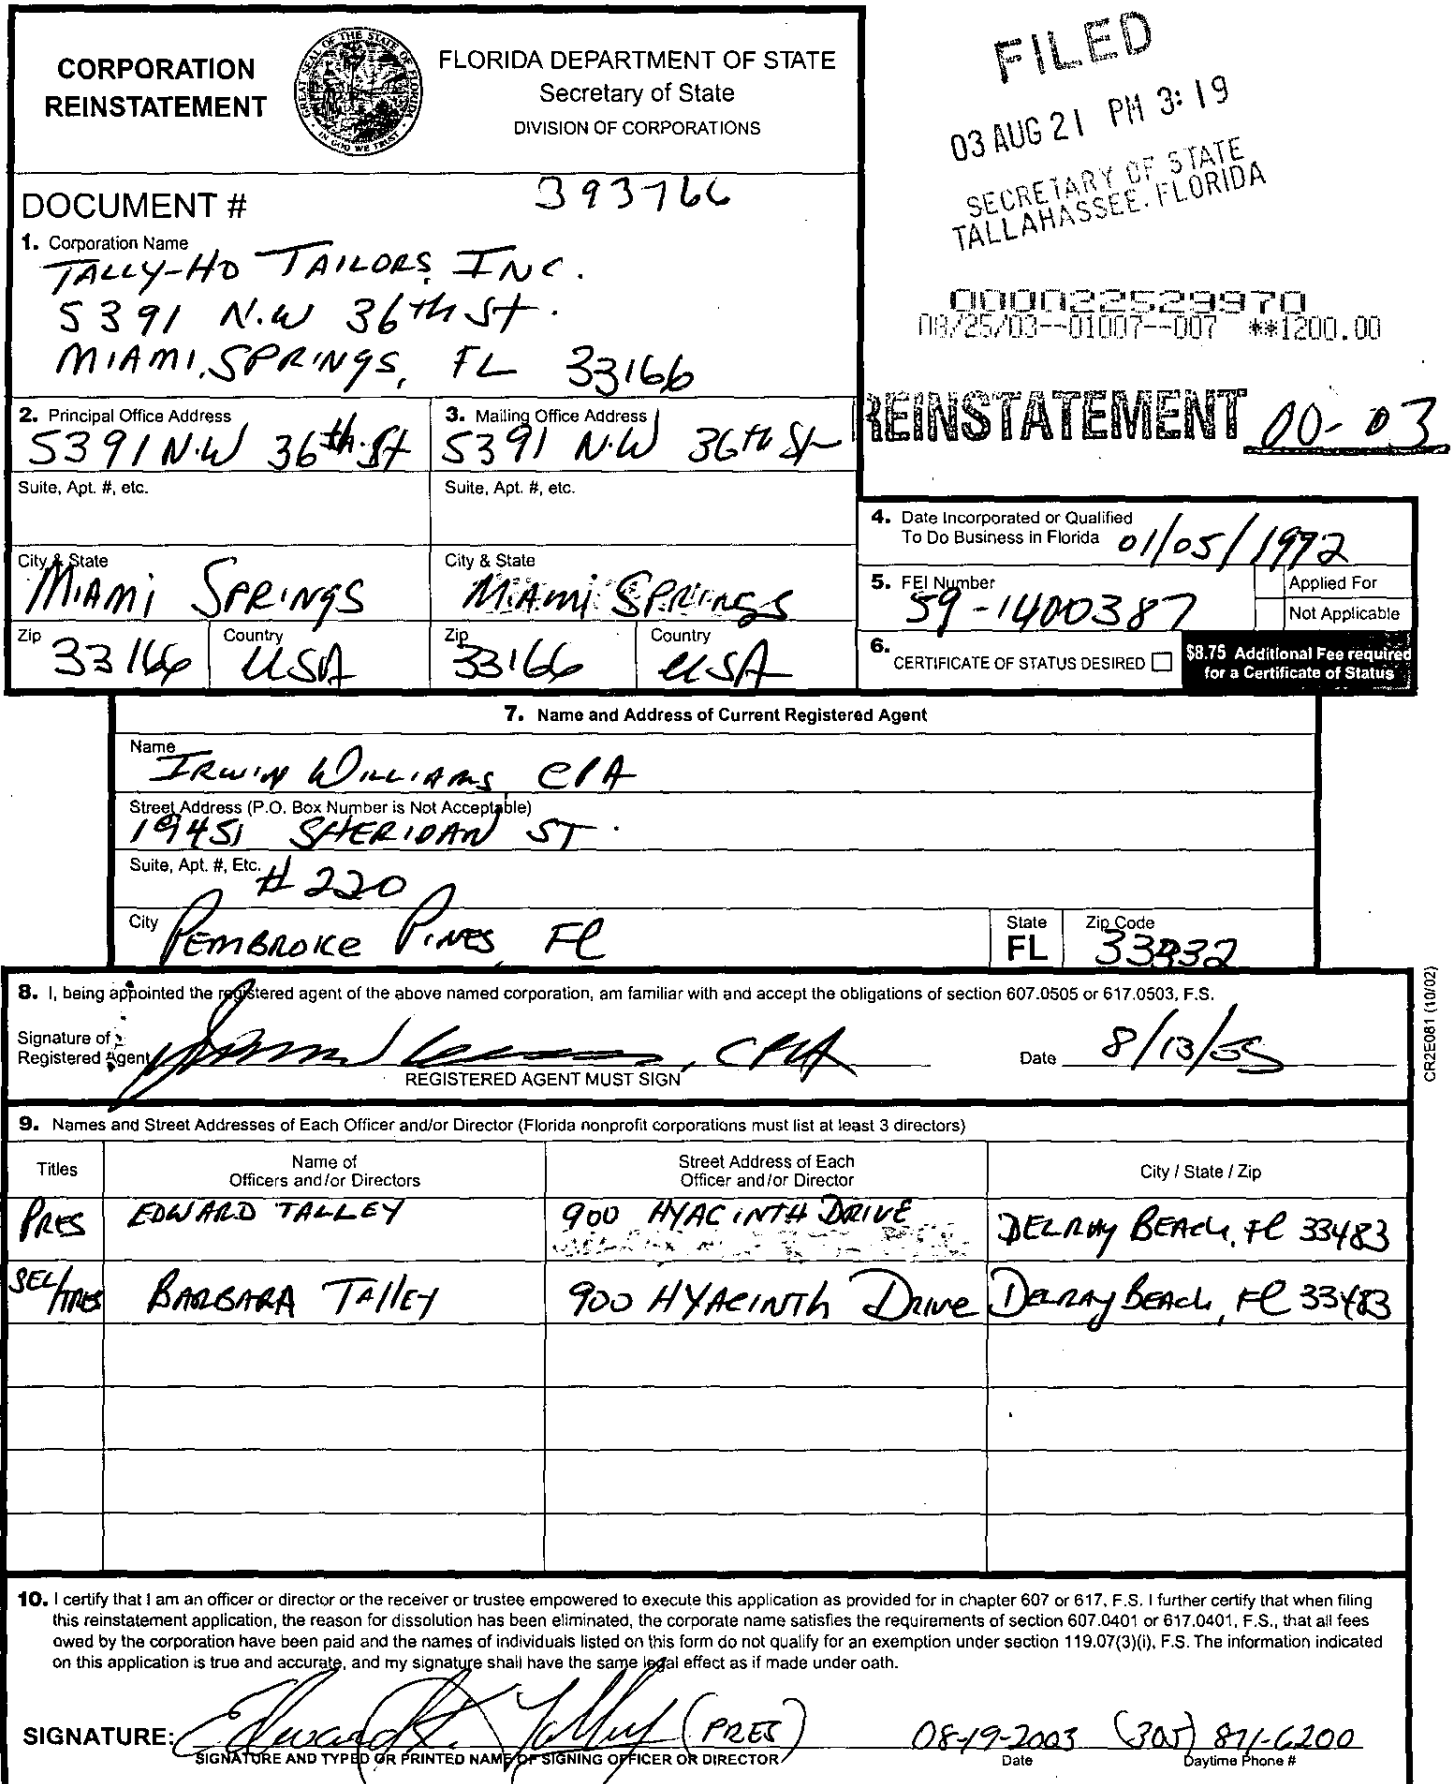 CORPORATION
REINSTATEMENT
GREAT SEAL OF THE STATE OF FLORIDA
IN GOD WE TRUST
FLORIDA DEPARTMENT OF STATE
Secretary of State
DIVISION OF CORPORATIONS
FILED
03 AUG 21 PM 3:19
SECRETARY OF STATE
TALLAHASSEE, FLORIDA
DOCUMENT # 393766
1. Corporation Name
TALLY-HO TAILORS, INC.
5391 N.W 36th St.
MIAMI, SPRINGS, FL 33166
000022529970
08/25/03--01007--007 **1200.00
REINSTATEMENT 00-03
2. Principal Office Address
5391 N.W 36th St
3. Mailing Office Address
5391 N.W 36th St
Suite, Apt. #, etc.
Suite, Apt. #, etc.
City & State
MIAMI SPRINGS
City & State
MIAMI SPRINGS
Zip 33166
Country USA
Zip 33166
Country USA
4. Date Incorporated or Qualified
To Do Business in Florida 01/05/1992
5. FEI Number
59-1400387
Applied For
Not Applicable
6. CERTIFICATE OF STATUS DESIRED
$8.75 Additional Fee required
for a Certificate of Status
7. Name and Address of Current Registered Agent
Name
IRWIN WILLIAMS CPA
Street Address (P.O. Box Number is Not Acceptable)
19451 SHERIDAN ST.
Suite, Apt. #, Etc. # 220
City PEMBROKE PINES, FL
State
FL
Zip Code
33332
8. I, being appointed the registered agent of the above named corporation, am familiar with and accept the obligations of section 607.0505 or 617.0503, F.S.
Signature of
Registered Agent , CPA
REGISTERED AGENT MUST SIGN
Date 8/13/
CR2E081 (10/02)
9. Names and Street Addresses of Each Officer and/or Director (Florida nonprofit corporations must list at least 3 directors)
Titles
Name of
Officers and/or Directors
Street Address of Each
Officer and/or Director
City / State / Zip
PRES EDWARD TALLEY 900 HYACINTH DRIVE DELRAY BEACH, FL 33483
SEC/TRES BARBARA TALLEY 900 HYACINTH DRIVE DELRAY BEACH, FL 33483
10. I certify that I am an officer or director or the receiver or trustee empowered to execute this application as provided for in chapter 607 or 617, F.S. I further certify that when filing
this reinstatement application, the reason for dissolution has been eliminated, the corporate name satisfies the requirements of section 607.0401 or 617.0401, F.S., that all fees
owed by the corporation have been paid and the names of individuals listed on this form do not qualify for an exemption under section 119.07(3)(i), F.S. The information indicated
on this application is true and accurate, and my signature shall have the same legal effect as if made under oath.
SIGNATURE: Edward Talley (PRES) 08-19-2003 (305) 871-6200
SIGNATURE AND TYPED OR PRINTED NAME OF SIGNING OFFICER OR DIRECTOR
Date
Daytime Phone #